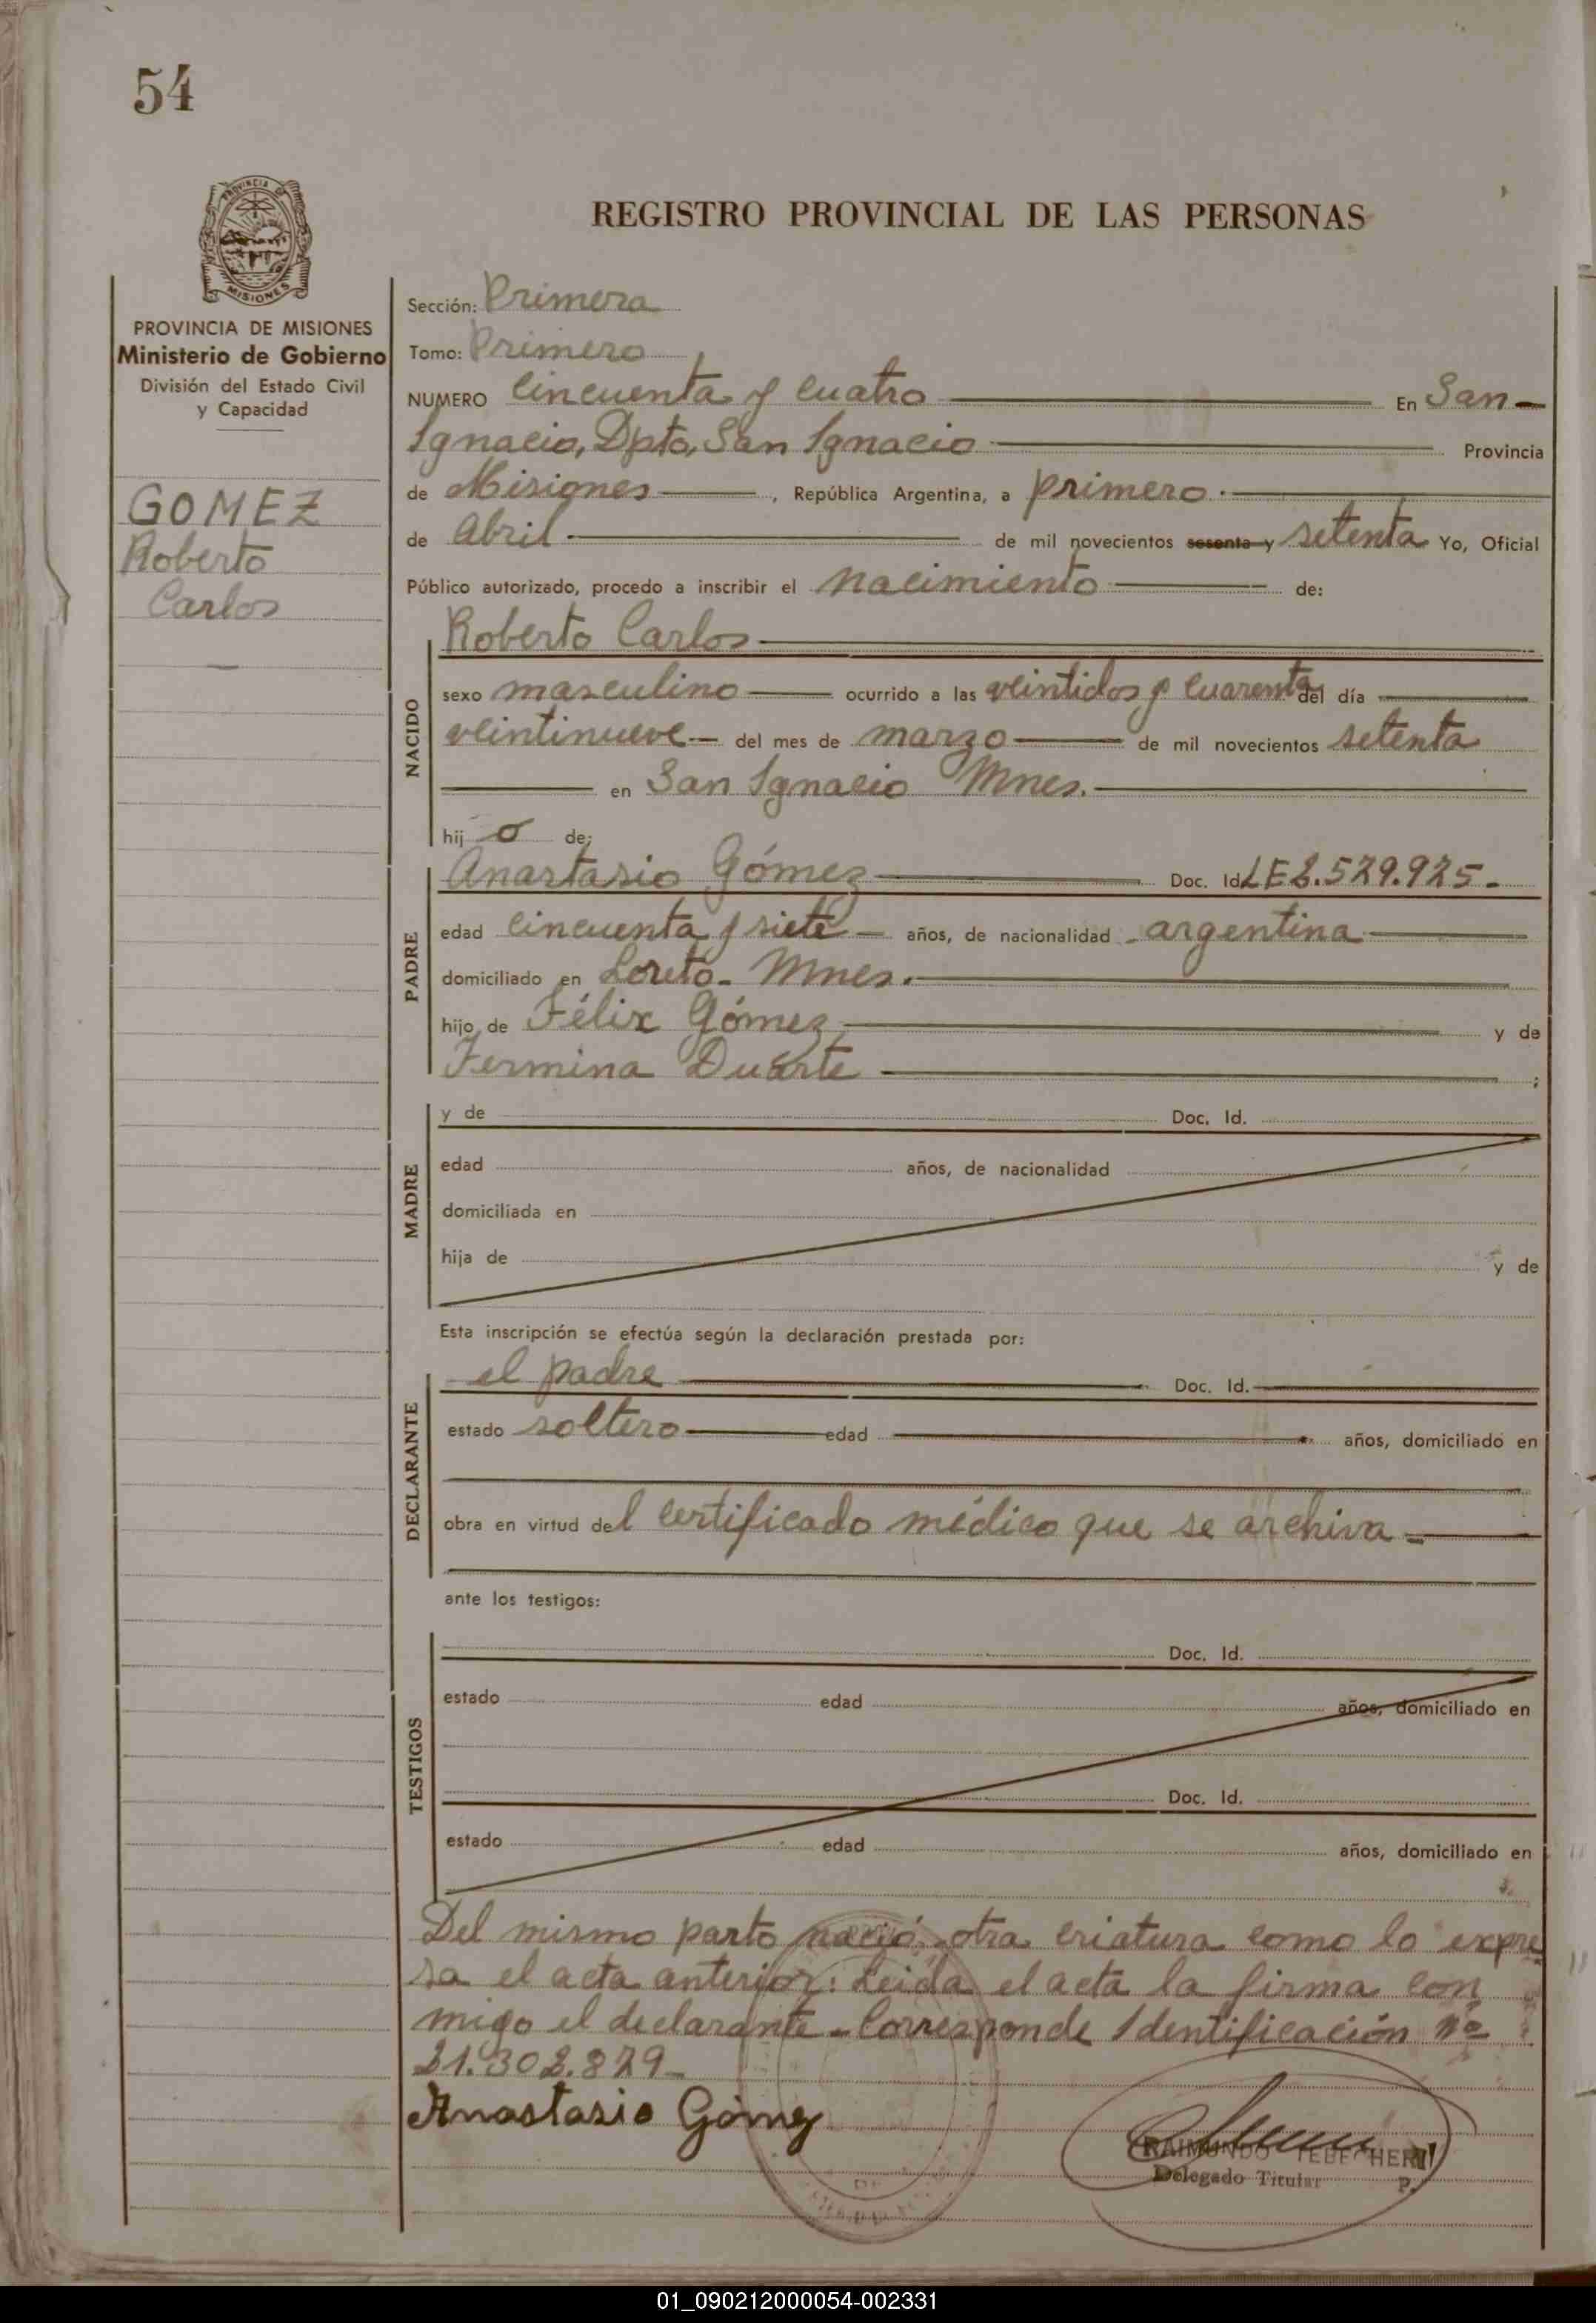 54
PROVINCIA DE
MISIONES
REGISTRO PROVINCIAL DE LAS PERSONAS
PROVINCIA DE MISIONES
Ministerio de Gobierno
División del Estado Civil
y Capacidad
GOMEZ
Roberto
Carlos
Sección: Primera
Tomo: Primero
NUMERO Cincuenta y cuatro En San
Ignacio, Dpto, San Ignacio Provincia
de Misiones, República Argentina, a primero
de Abril de mil novecientos sesenta y setenta Yo, Oficial
Público autorizado, procedo a inscribir el nacimiento de:
NACIDO
Roberto Carlos
sexo masculino ocurrido a las veintidos y cuarenta del día
veintinueve del mes de marzo de mil novecientos setenta
en San Ignacio Mnes.
hijo de:
PADRE
Anastasio Gómez Doc. Id LE 2.529.925
edad cincuenta y siete años, de nacionalidad argentina
domiciliado en Loreto - Mnes.
hijo de Félix Gómez y de
Fermina Duarte ;
MADRE
y de Doc. Id.
edad años, de nacionalidad
domiciliada en
hija de y de
Esta inscripción se efectúa según la declaración prestada por:
DECLARANTE
el padre Doc. Id.
estado soltero edad años, domiciliado en
obra en virtud del certificado médico que se archiva
ante los testigos:
TESTIGOS
Doc. Id.
estado edad años, domiciliado en
Doc. Id.
estado edad años, domiciliado en
Del mismo parto nació otra criatura como lo expre
sa el acta anterior: Leída el acta la firma con
migo el declarante. Corresponde Identificación Nº
21.302.829
Anastasio Gómez
RAIMUNDO
Delegado Titular P.
01_090212000054-002331